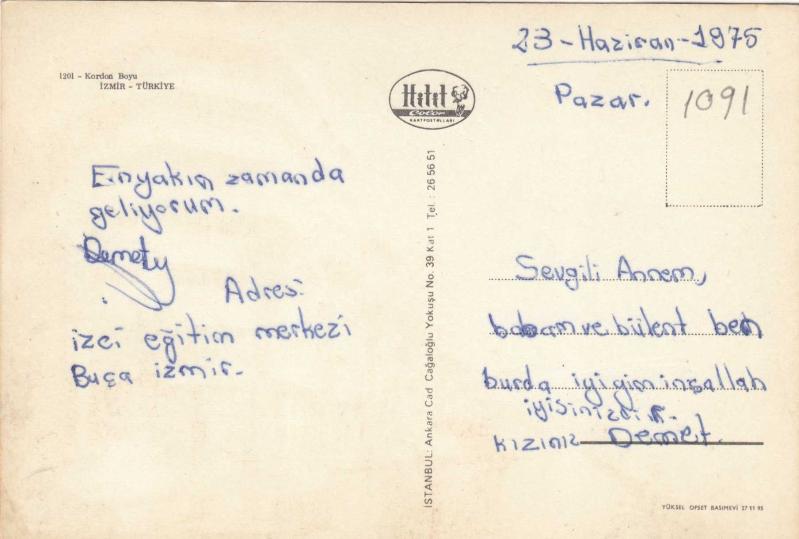 23-Haziran-1975
Pazar.
1091
1201 - Kordon Boyu
İZMİR - TÜRKİYE
Hitit
Color
KARTPOSTALLARI
Enyakın zamanda
geliyorum.
Demet
Adresi
izci eğitim merkezi
Buça izmir.
İSTANBUL: Ankara Cad Cağaloğlu Yokuşu No. 39 Kat 1 Tel.: 26 56 51
Sevgili Annem,
babam ve bülent ben
burda iyiyim inşallah
iyisinizdir.
kızınız Demet.
YÜKSEL OPSET BASIMEVİ 27 11 95